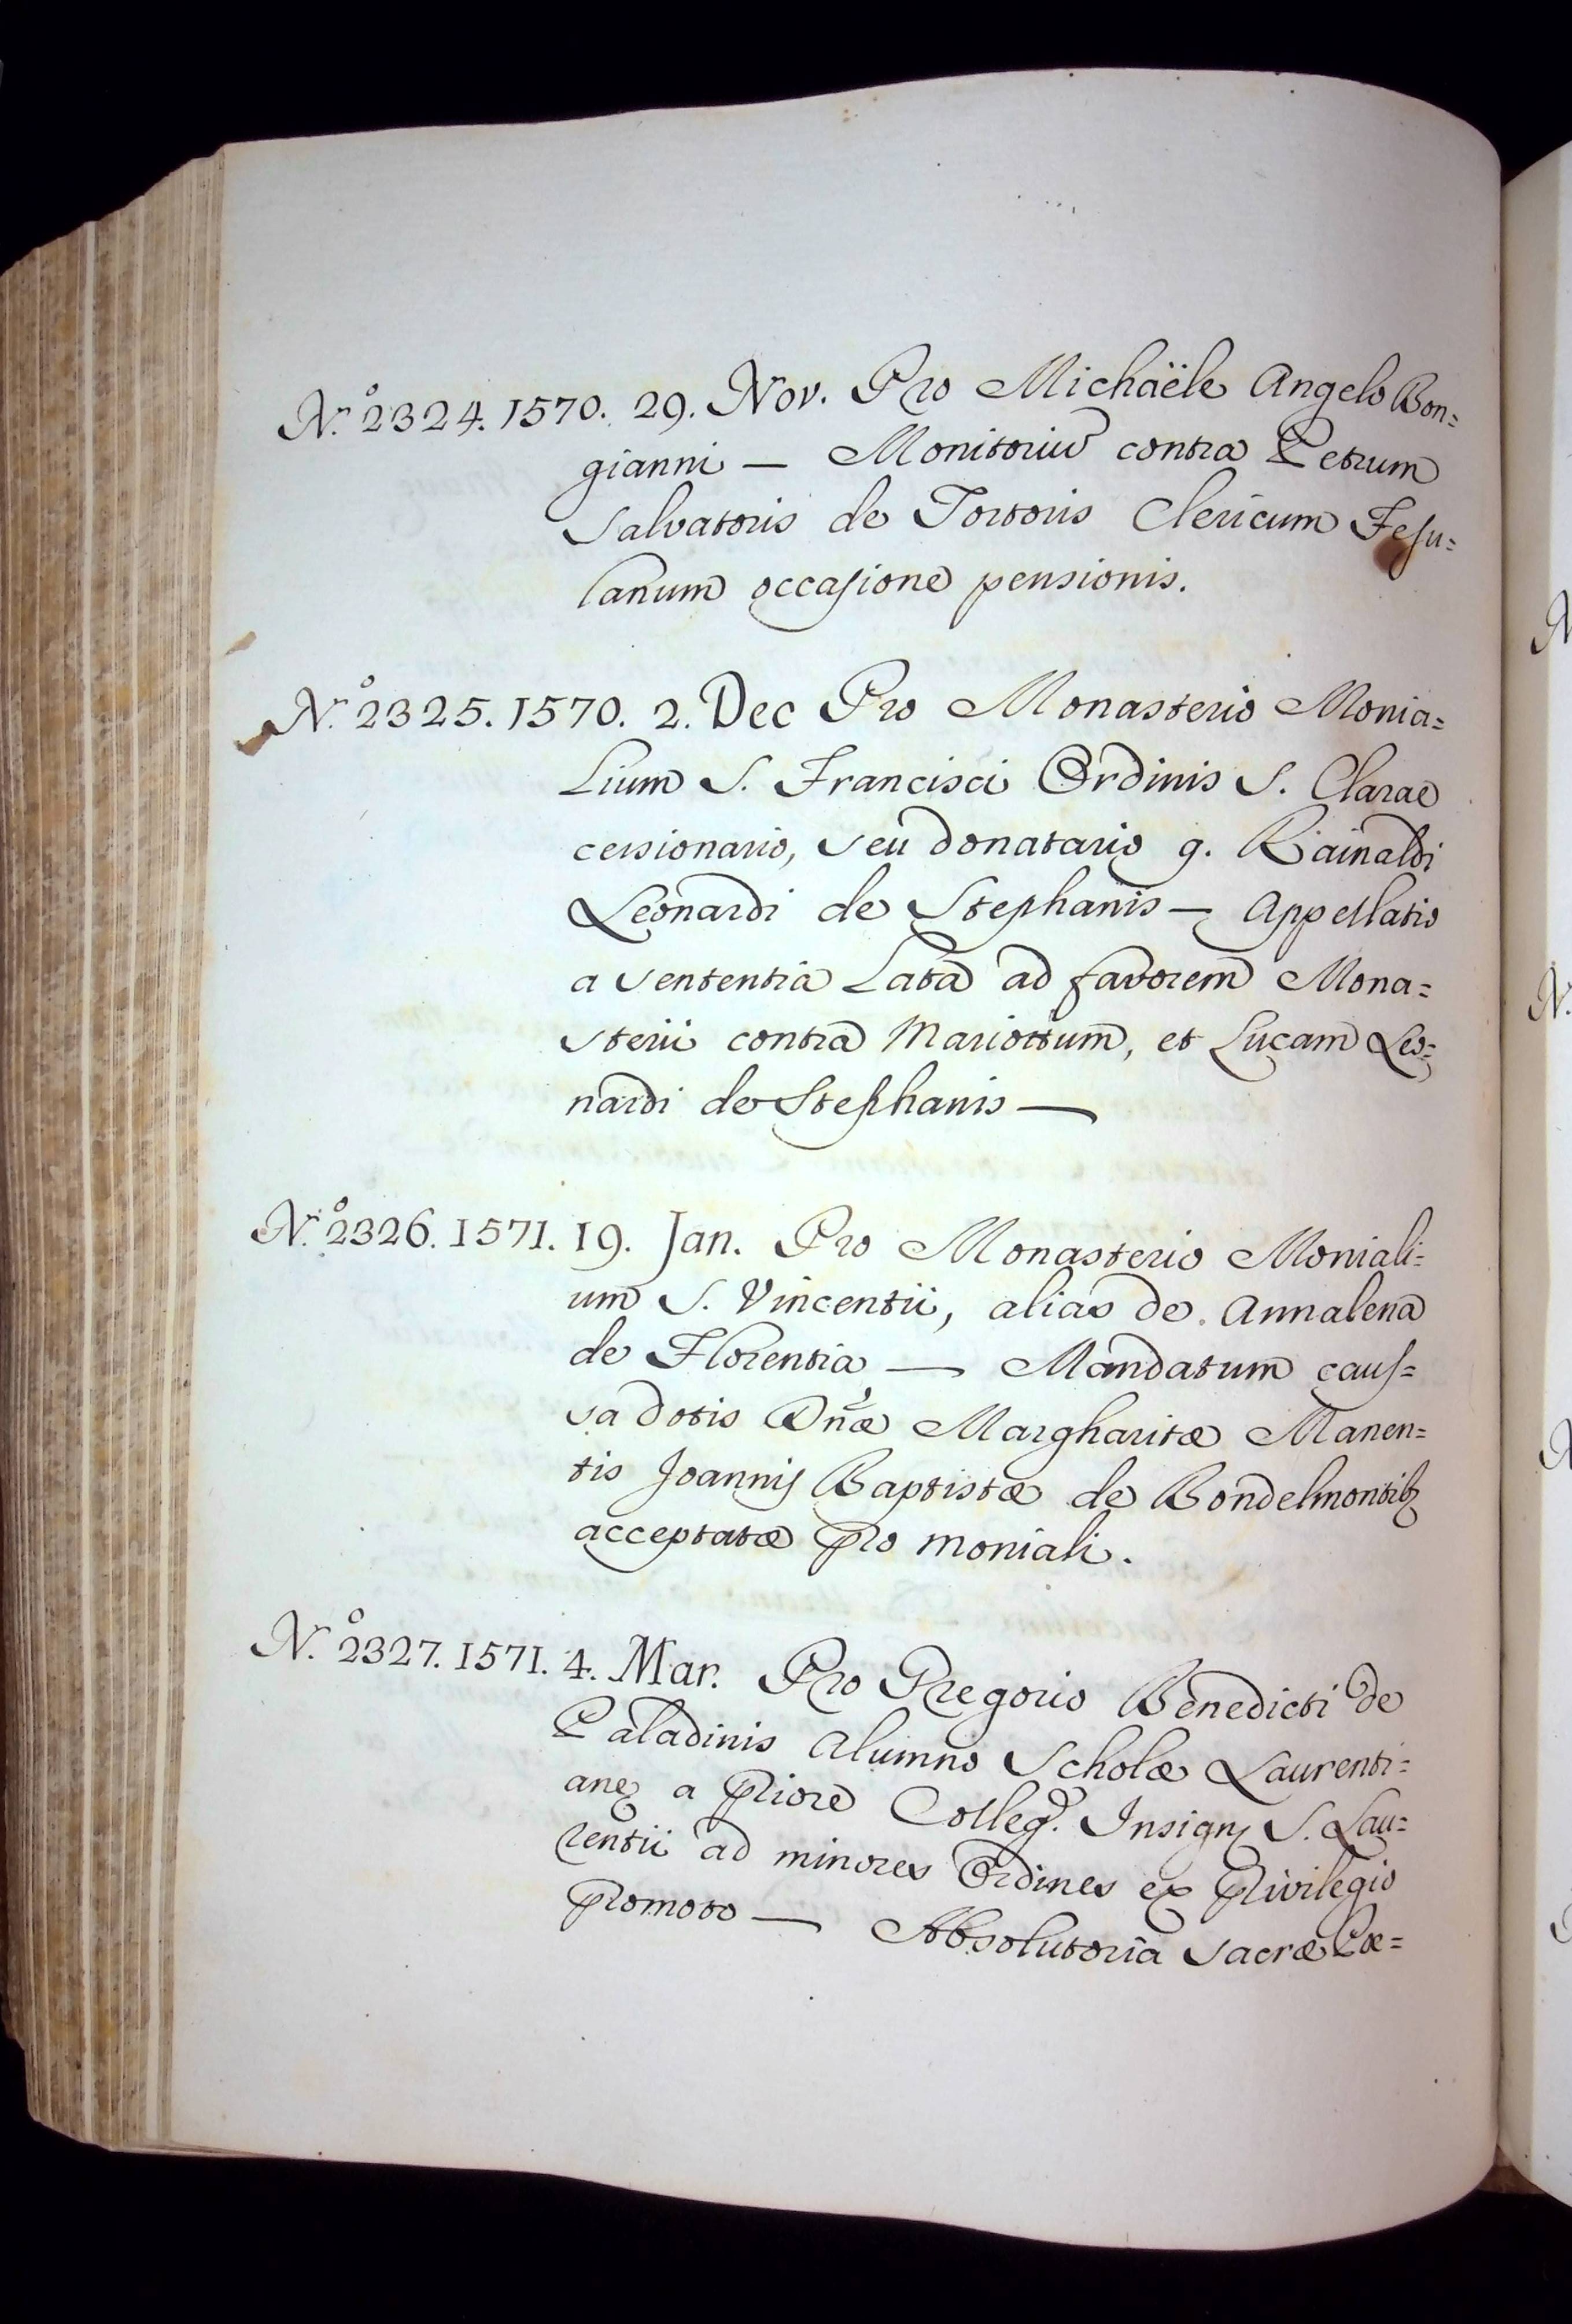 N.º 2324. 1570. 29. Nov. Pro Michaële Angelo Bon=
gianni — Monitoriu̅ contra Petrum
Salvatoris de Tortoris Clericum Fesu=
lanum occasione pensionis.
N.º 2325. 1570. 2. Dec Pro Monasterio Monia=
Lium S. Francisci Ordinis S. Clarae
cessionario, seu donatario q. Rainaldi
Leonardi de Stephanis — Appellatio
a sententia Lata ad favorem Mona=
sterii contra Mariottum, et Lucam Leo=
nardi de Stephanis —
N.º 2326. 1571. 19. Jan. Pro Monasterio Moniali=
um S. Vincentii, alias de Annalena
de Florentia — Mandatum caus=
sa dotis Dn̅æ Margharitæ Manen=
tis Joannis Baptistæ de Bondelmontibꝫ
acceptatæ pro moniali.
N.º 2327. 1571. 4. Mar. Pro Gregorio Benedicti de
Paladinis Alumno Scholæ Laurenti=
anę a Priore Colleg. Insignis S. Lau=
rentii ad minores Ordines ex Privilegio
promoto — Absolutoria Sacræ Pœ=